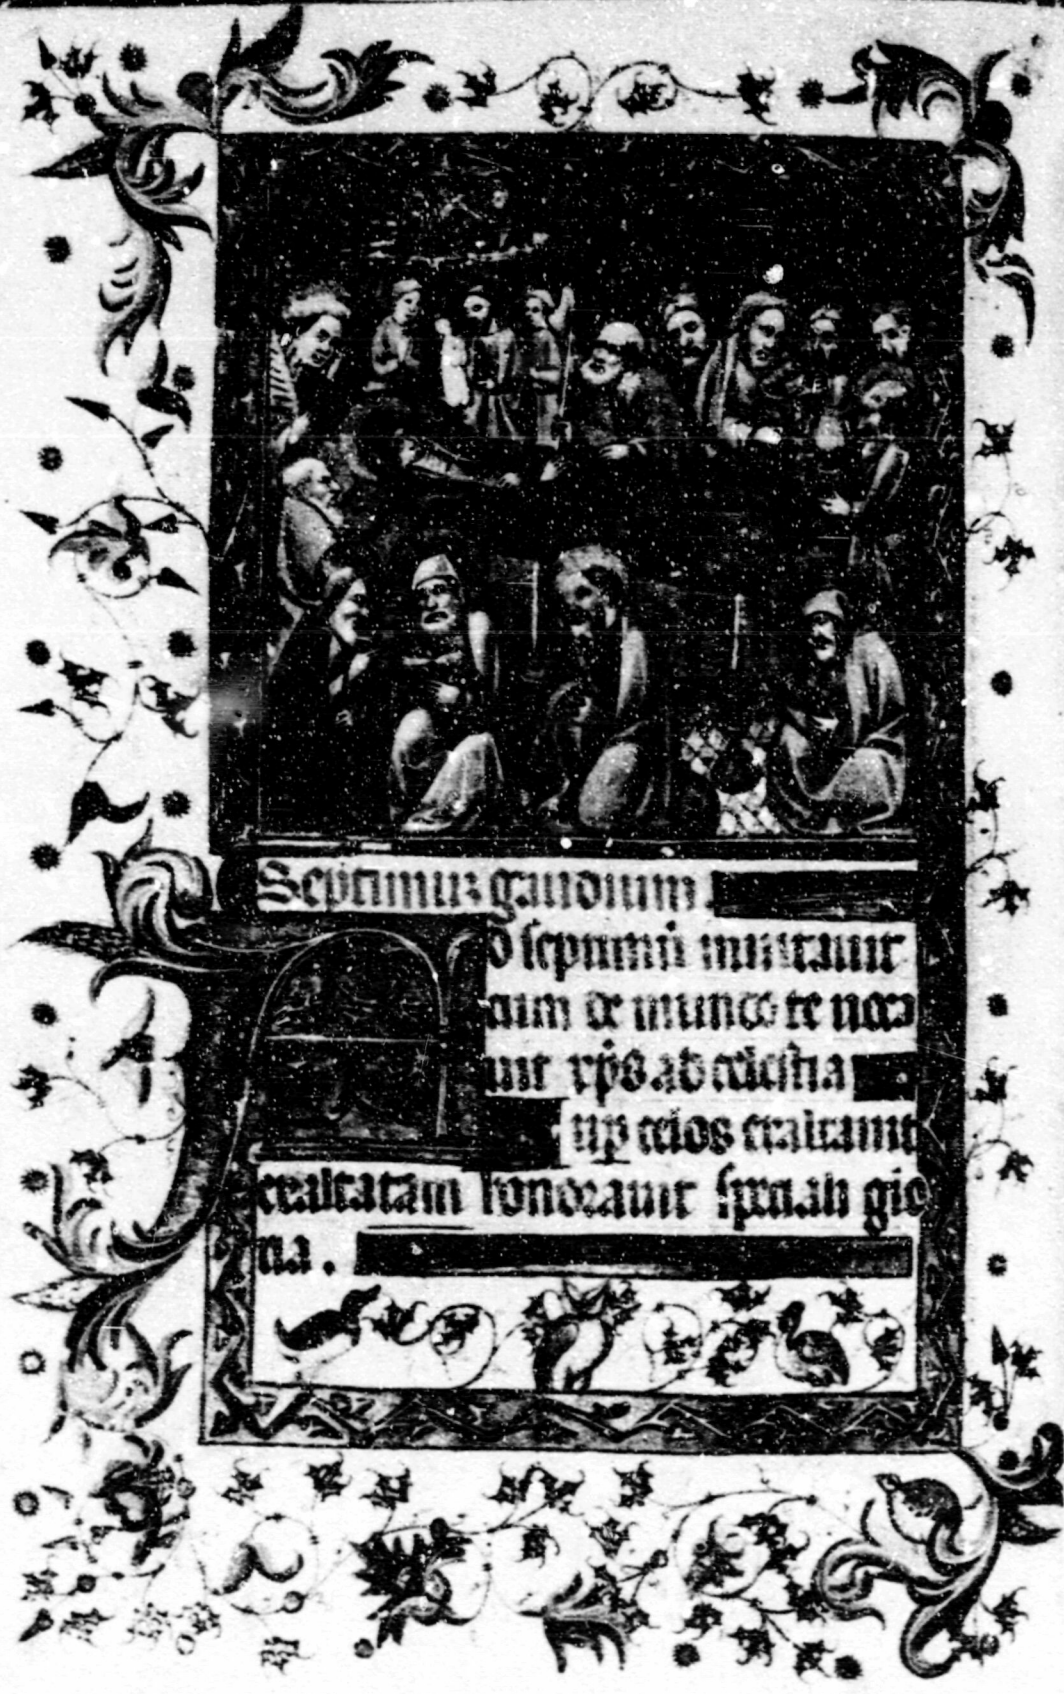 Septimum gaudium.
D septimū inuitauit
cum de mundo te uoca
uit xp̄s ad celestia
sup celos exaltauit
exaltatam honorauit speciali glo
ria.